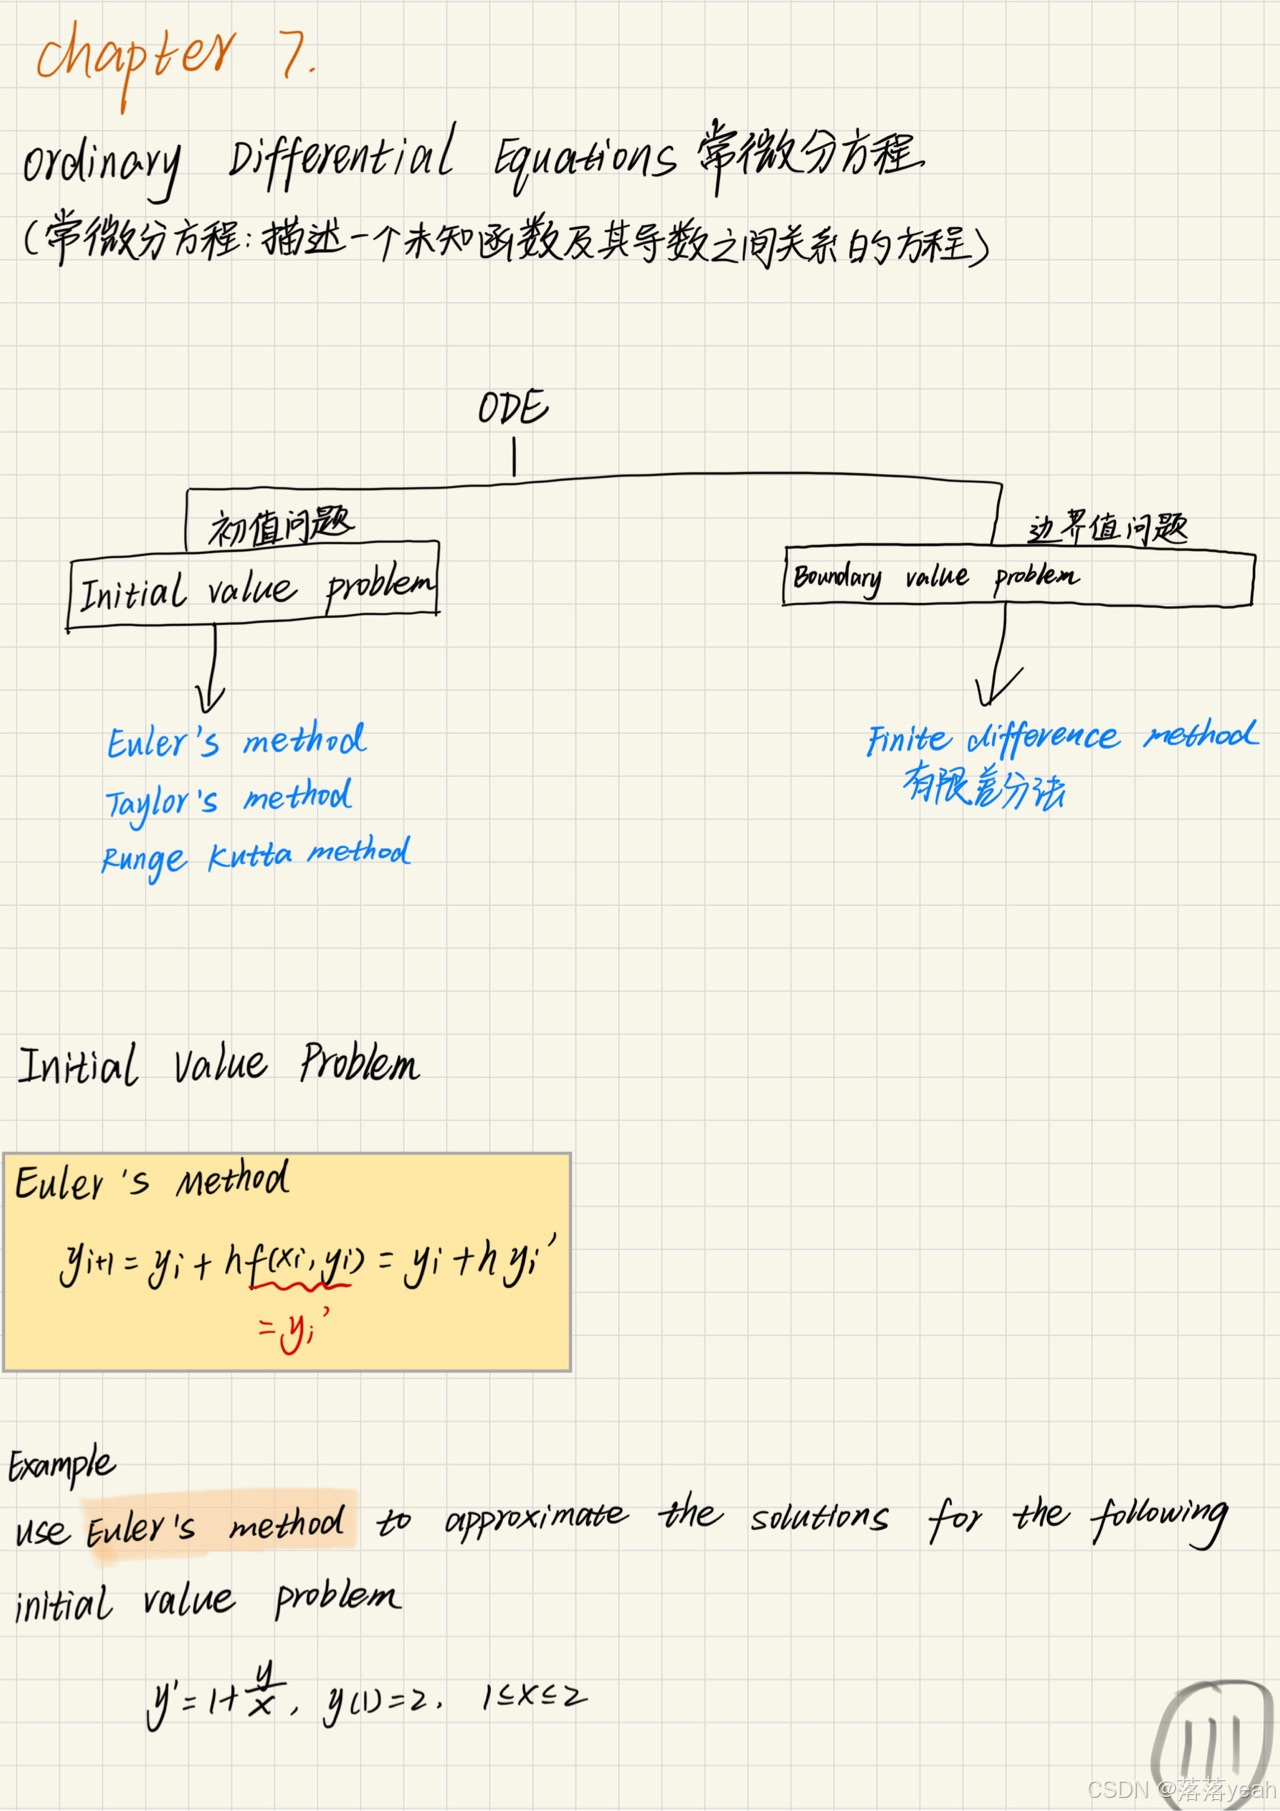 chapter 7.
Ordinary Differential Equations 常微分方程.
(常微分方程:描述一个未知函数及其导数之间关系的方程)
ODE
初值问题
Initial value problem
边界值问题
Boundary value problem
Euler's method
Taylor's method
Runge Kutta method
Finite difference method
有限差分法
Initial Value Problem
Euler's Method
yᵢ₊₁ = yᵢ + hf(xᵢ, yᵢ) = yᵢ + h yᵢ'
= yᵢ'
Example
use Euler's method to approximate the solutions for the following
initial value problem
y' = 1 + y/x, y(1) = 2. 1 ≤ x ≤ 2
111
CSDN @落落yeah